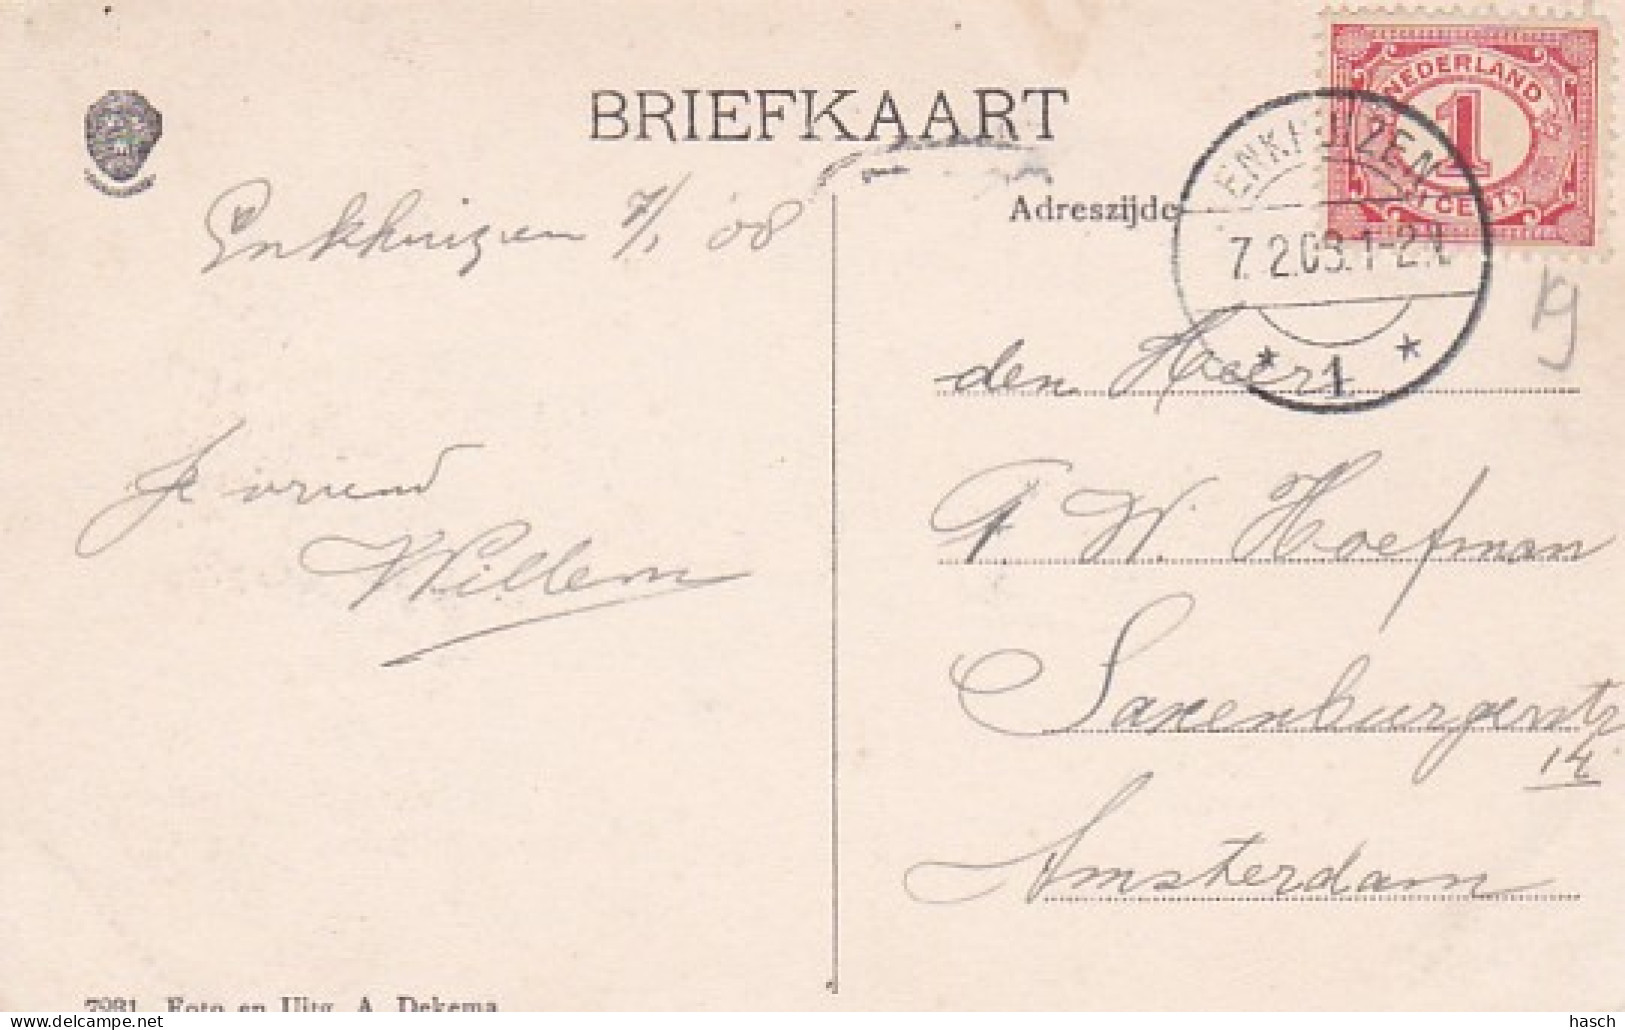 BRIEFKAART
NEDERLAND
1
CENT
ENKHUIZEN
7.2.08.1-2N
* 1 *
Adreszijde
Enkhuizen 7/ '08
den Heer
W. Hoefman
Saxenburgerstr
14
Amsterdam
Je vriend
Willem
7981 Foto en Uitg. A. Dekema
www.delcampe.net
hasch